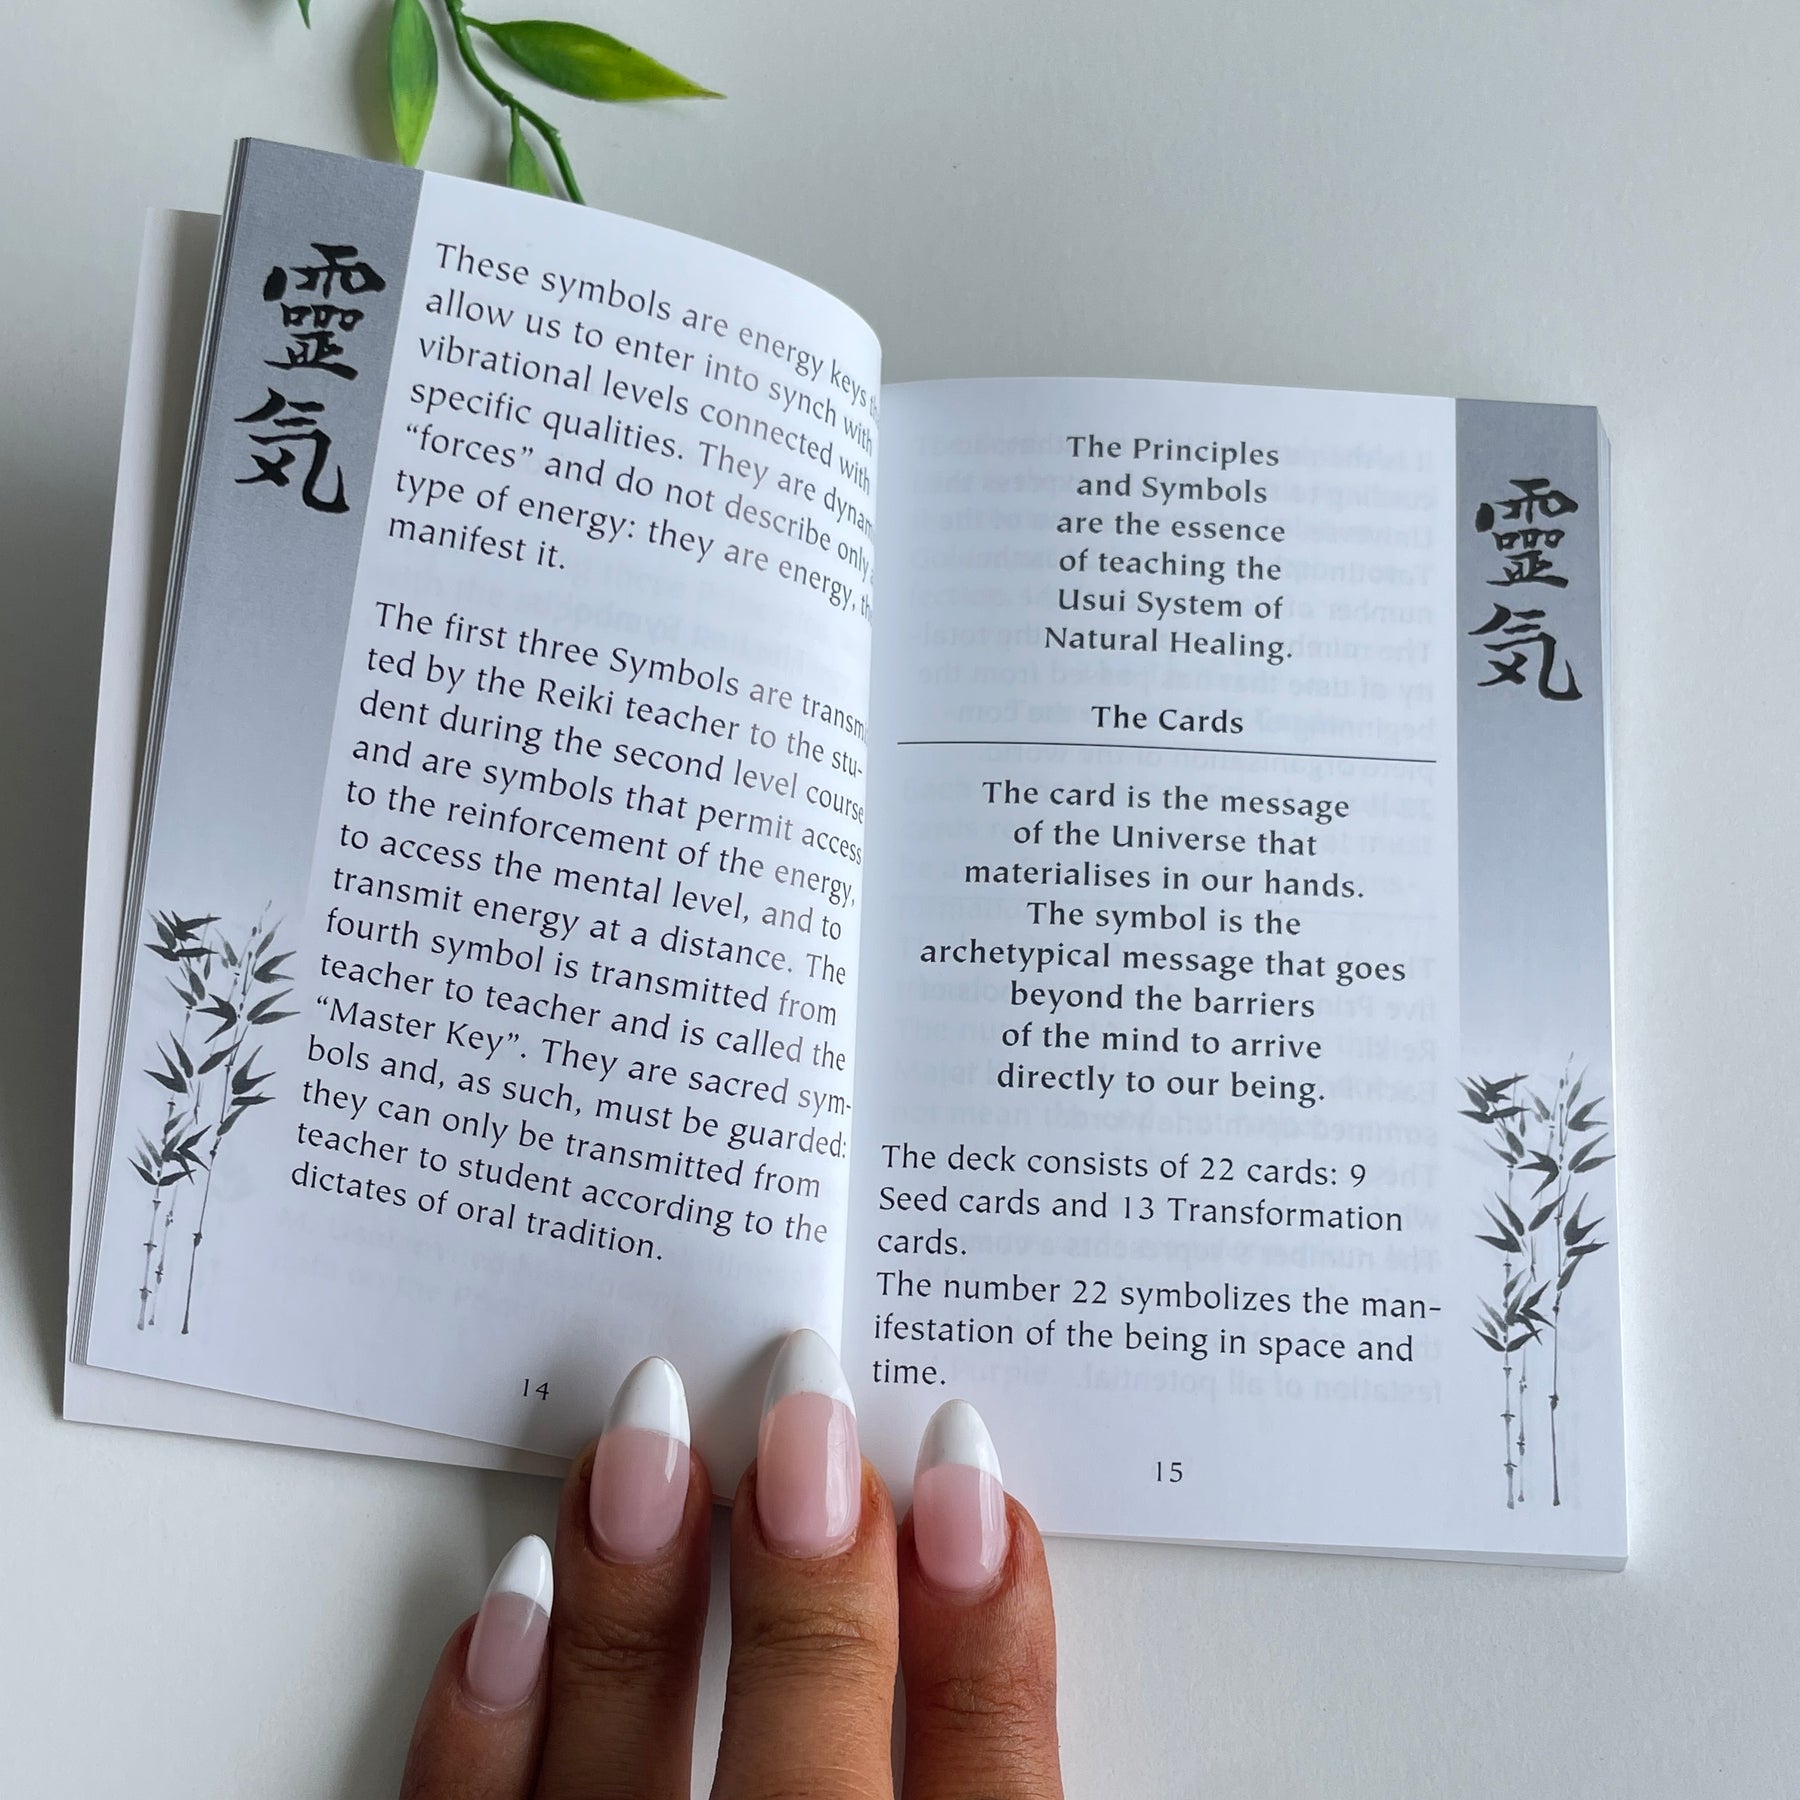 靈
気
These symbols are energy keys
allow us to enter into synch with
vibrational levels connected with
specific qualities. They are
“forces” and do not describe only
type of energy: they are energy,
manifest it.
The first three Symbols are
ted by the Reiki teacher to the stu-
dent during the second level course
and are symbols that permit access
to the reinforcement of the energy,
to access the mental level, and to
transmit energy at a distance. The
fourth symbol is transmitted from
teacher to teacher and is called the
“Master Key”. They are sacred sym-
bols and, as such, must be guarded:
they can only be transmitted from
teacher to student according to the
dictates of oral tradition.
14
The Principles
and Symbols
are the essence
of teaching the
Usui System of
Natural Healing.
The Cards
The card is the message
of the Universe that
materialises in our hands.
The symbol is the
archetypical message that goes
beyond the barriers
of the mind to arrive
directly to our being.
The deck consists of 22 cards: 9
Seed cards and 13 Transformation
cards.
The number 22 symbolizes the man-
ifestation of the being in space and
time.
15
靈
気